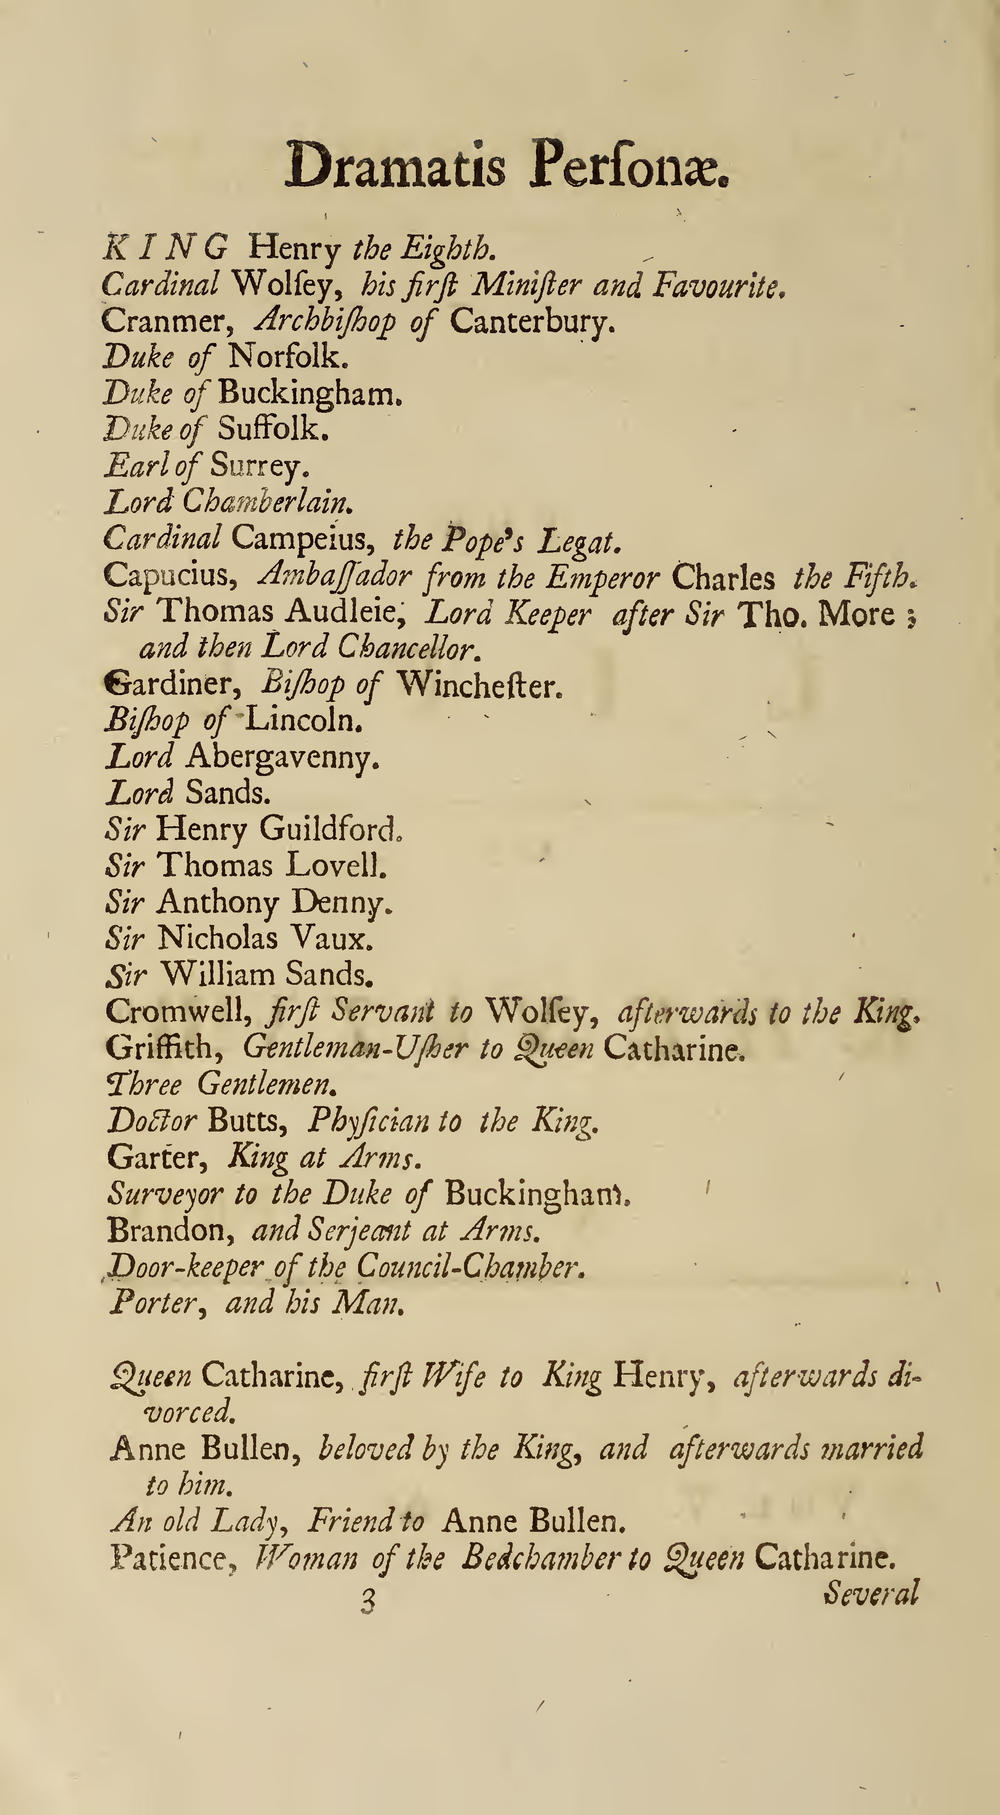 Dramatis Perſonæ.
KING Henry the Eighth.
Cardinal Wolſey, his firſt Miniſter and Favourite.
Cranmer, Archbiſhop of Canterbury.
Duke of Norfolk.
Duke of Buckingham.
Duke of Suffolk.
Earl of Surrey.
Lord Chamberlain.
Cardinal Campeius, the Pope's Legat.
Capucius, Ambaſſador from the Emperor Charles the Fifth.
Sir Thomas Audleie, Lord Keeper after Sir Tho. More ;
and then Lord Chancellor.
Gardiner, Biſhop of Wincheſter.
Biſhop of Lincoln.
Lord Abergavenny.
Lord Sands.
Sir Henry Guildford.
Sir Thomas Lovell.
Sir Anthony Denny.
Sir Nicholas Vaux.
Sir William Sands.
Cromwell, firſt Servant to Wolſey, afterwards to the King.
Griffith, Gentleman-Uſher to Queen Catharine.
Three Gentlemen.
Doctor Butts, Phyſician to the King.
Garter, King at Arms.
Surveyor to the Duke of Buckingham.
Brandon, and Serjeant at Arms.
Door-keeper of the Council-Chamber.
Porter, and his Man.
Queen Catharine, firſt Wife to King Henry, afterwards di-
vorced.
Anne Bullen, beloved by the King, and afterwards married
to him.
An old Lady, Friend to Anne Bullen.
Patience, Woman of the Bedchamber to Queen Catharine.
3 Several